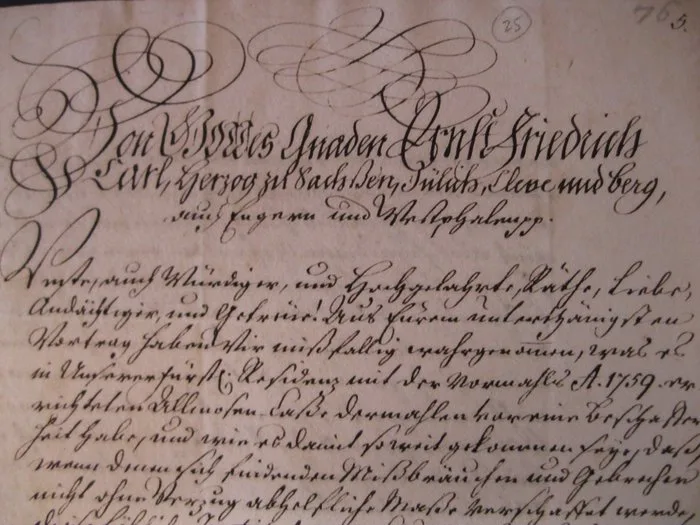 25
76
5.
Von GOttes Gnaden Ernst Friedrich
Carl, Herzog zu Sachßen, Jülich, Cleve und Berg,
auch Engern und Westphalen pp.
Veste, auch Würdiger, und Hochgelahrte, Räthe, Liebe,
Andächtiger, und Getreüe! Aus Eurem unterthänigsten
Vortrag haben Wir mißfällig wahrgenom̄en, was es
in Unserer Fürstl: Residenz mit der vormahls A. 1759. er
richteten Allmosen-Caße dermahlen vor eine Beschaffen
heit habe, und wie es damit so weit gekommen seye, daß,
wenn denen sich findenden Mißbräuchen und Gebrechen
nicht ohne Verzug abhelfliche Maße verschaffet werde,